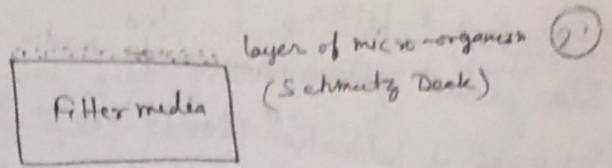 layer of micro-organism
(Schmutz Deck)
Filter media